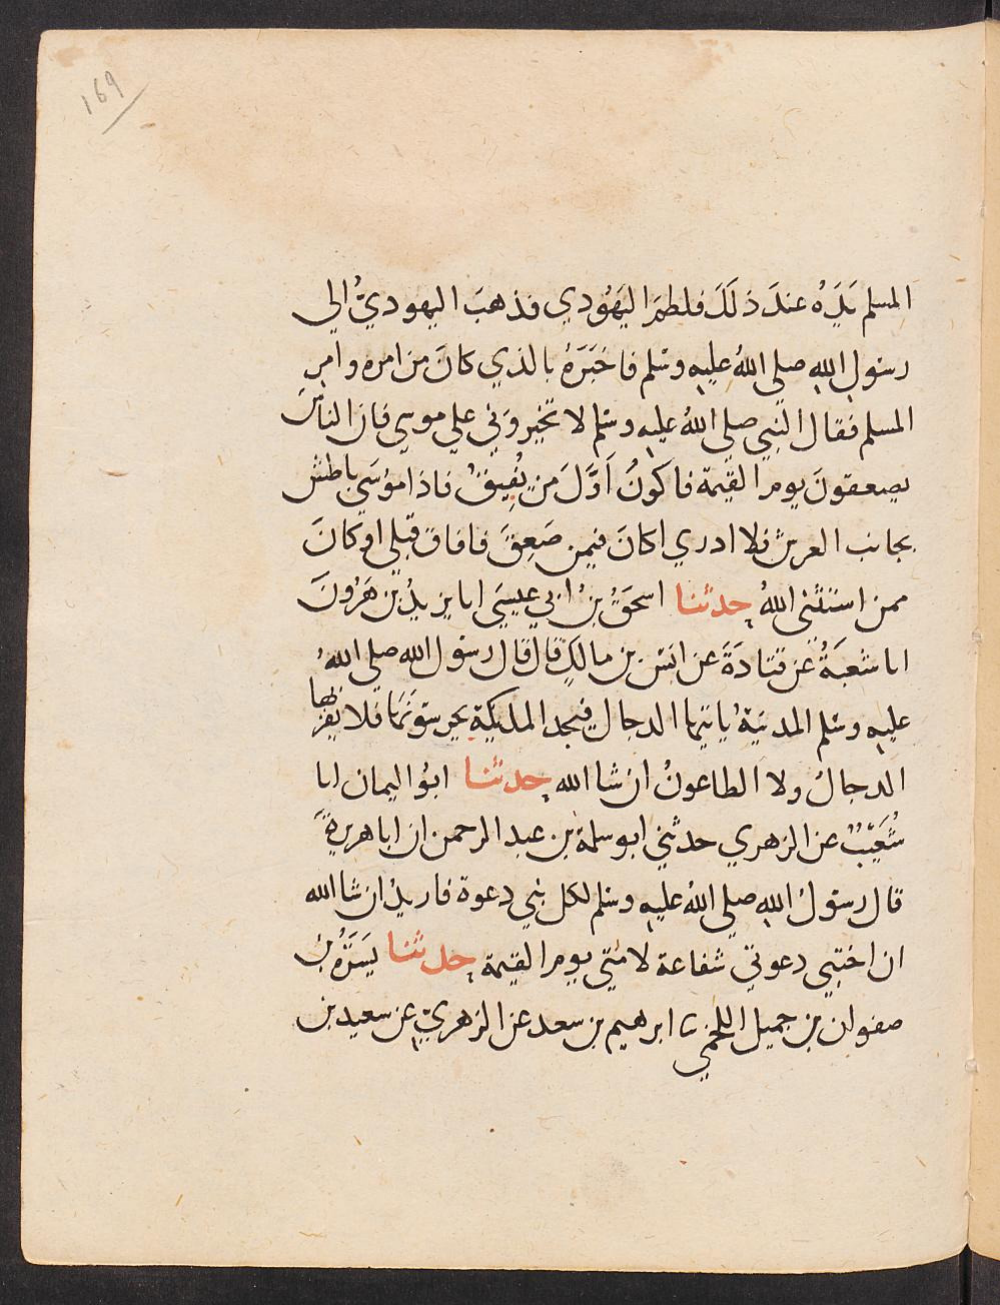 169
المسلم يَدَهُ عندَ ذلكَ فلطمَ اليَهُودي فذهبَ اليهوديُّ الي
رسول الله صلى اللهُ عليه وسلم فاخبَرَهُ بالذي كانَ من امره وامرِ
المسلم فقال النبي صلى اللهُ عليه وسلم لا تخيروَني علي موسي فان الناسَ
يصعقونَ يوم القيمة فاكونُ اَوَّلَ من يُفِيقُ فاذا موُسَي باطش
بجانب العرش فلا ادري اكانَ فيمن صَعِقَ فافاق قبلي او كانَ
ممن استثنى اللهُ حدثنا اسحقُ بنُ ابي عيسَي انا يزيدُ بن هَرُونَ
انا شعبَةُ عن قتادَةَ عن انسَ بن مالكٍ قال قال رسول الله صلى اللهُ
عليه وسلم المدينةُ ياتيها الدجال فيجد المليكة يحرسُونَها فلا يقربها
الدجالُ ولا الطاعونُ ان شا الله حدثنا ابوُ اليمان انا
شُعَيْبٌ عن الزهري حدثني ابو سلمة بن عبد الرحمن ان ابا هريرةَ
قال رسولُ الله صلي اللهُ عليه وسلم لكل نبي دعوة فاريدُ ان شا الله
ان اختبي دعوتي شفاعة لامتي يوم القيمة حدثنا يَسَرَةُ بنُ
صفوان بن جميل اللخمي ثنا ابرهيم بن سعد عن الزهريّ عن سعيد بن